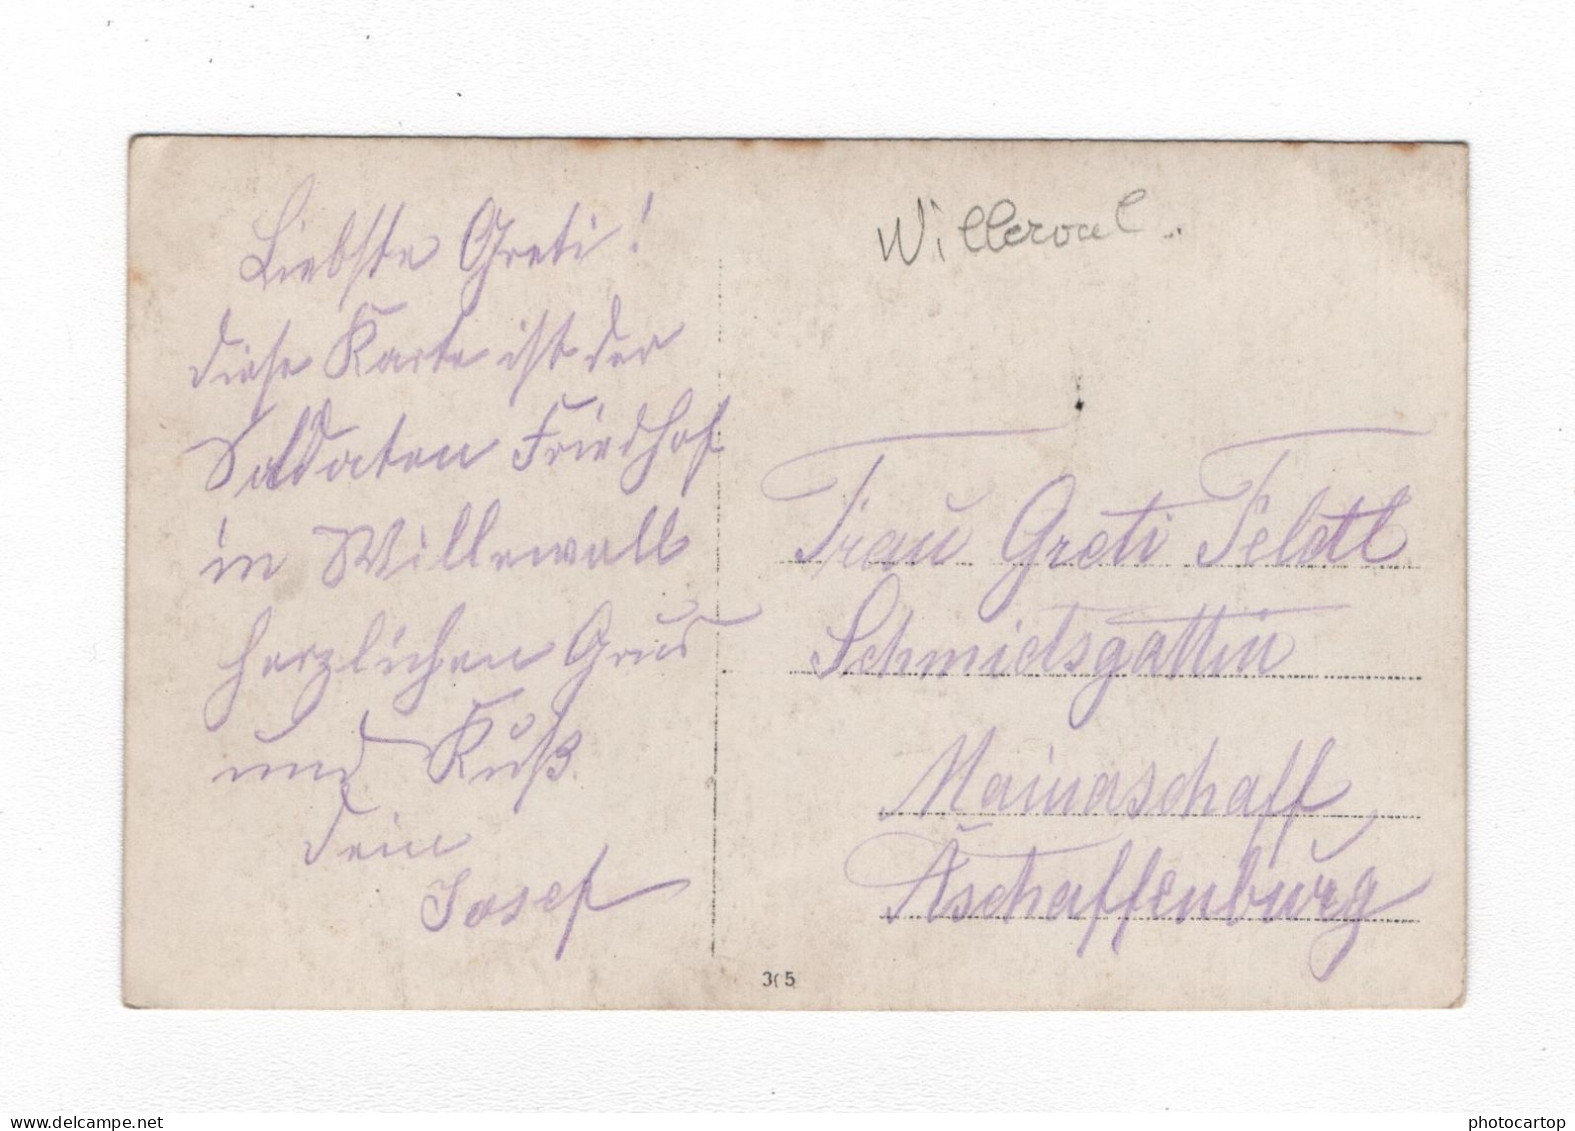 Liebste Greti!
diese Karte ist der
Soldaten Friedhof
in Willewall
herzlichen Grus
und Kuß.
dein
Josef
Willerval..
Frau Greti Feldtl
Schmidsgattin
Mainaschaff
Aschaffenburg
305
photocartop